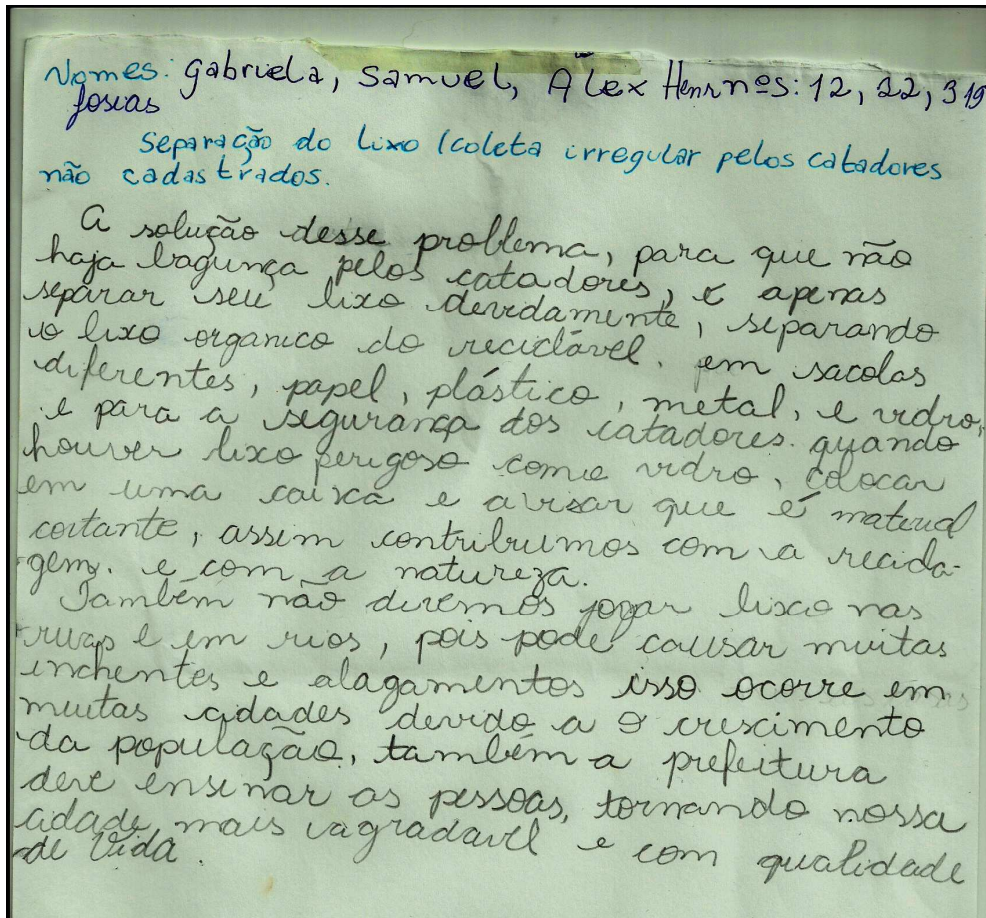 Nomes: Gabriela, Samuel, Álex Henr nºs: 12, 22, 3 19
Josias
Separação do Lixo (coleta irregular pelos catadores
não cadastrados.
A solução desse problema, para que não
haja bagunça pelos catadores, é apenas
separar seu lixo devidamente, separando
o lixo organico do reciclável. em sacolas
diferentes, papel, plástico, metal, e vidro,
e para a segurança dos catadores. quando
houver lixo perigoso como vidro, colocar
em uma caixa e avisar que é material
cortante, assim contribuimos com a recicla-
gem. e com a natureza.
Também não devemos jogar lixo nas
ruas e em rios, pois pode causar muitas
enchentes e alagamentos isso ocorre em
muitas cidades devido a o crescimento
da população, também a prefeitura
deve ensinar as pessoas, tornando nossa
cidade mais agradavel e com qualidade
de vida.